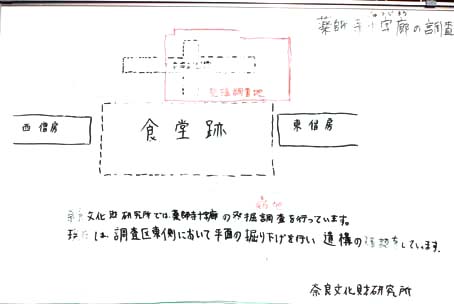 薬師寺十字廊の調査
発掘調査地
西僧房
食堂跡
東僧房
文化財研究所では薬師寺十字廊の発掘調査を行っています。
は、調査区東側において平面の掘り下げを行い遺構の確認をしています。
奈良文化財研究所